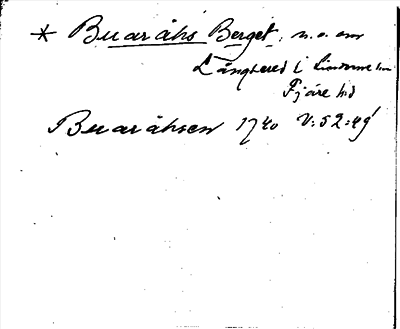 * Buaråhs Berget, n. o. om
Långhered i Lindome sn
Fjäre hd
Buaråhsen 1740 V:52:49